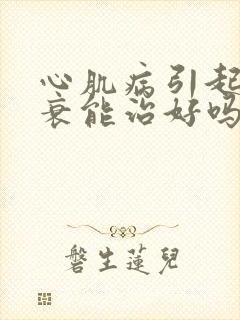 心肌病引起
衰能治好吗
磐生蓮兒